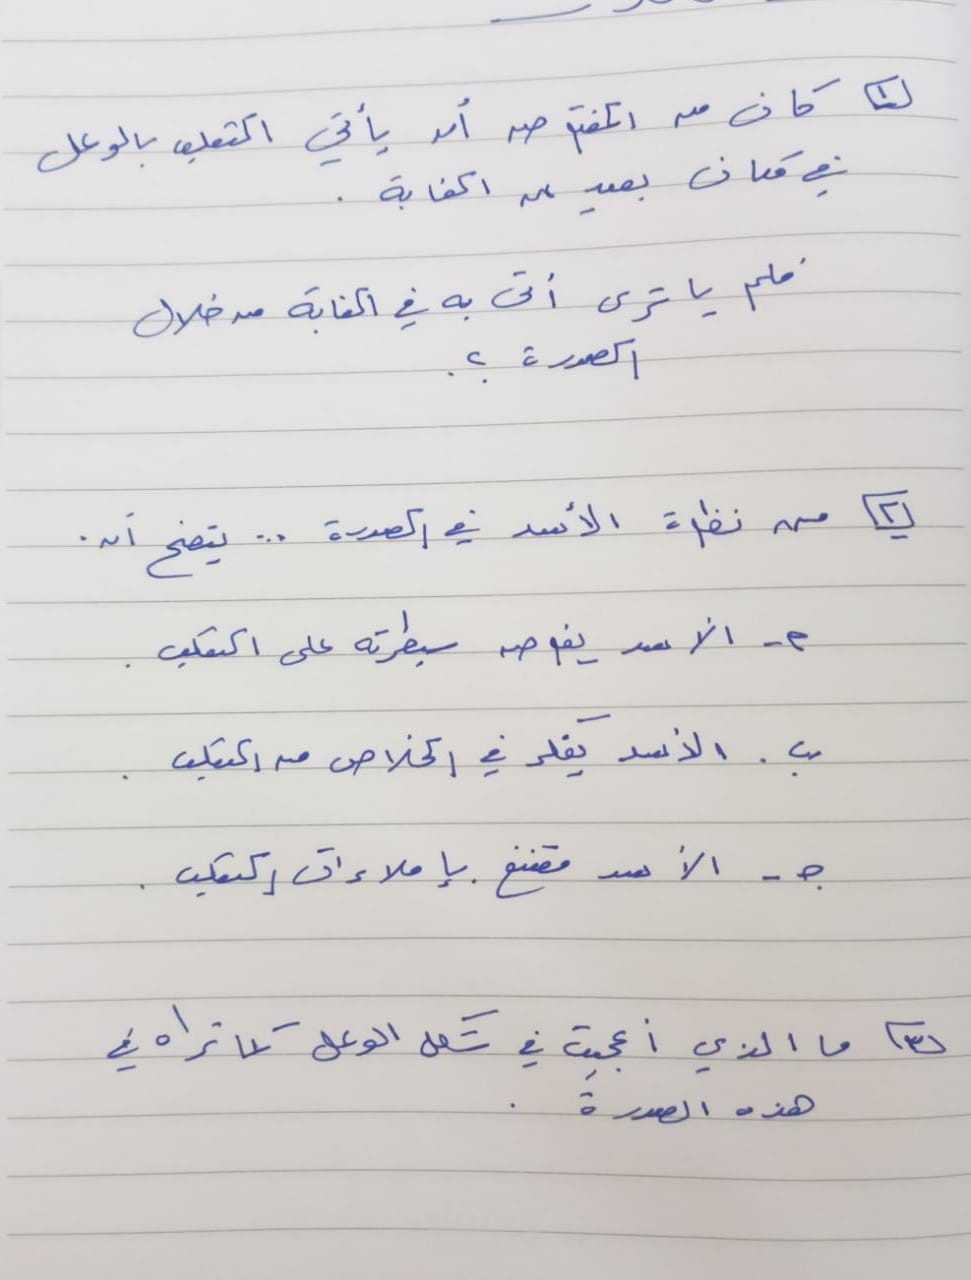 ١ كان من المفترض أن يأتي الثعلب بالوعل
في مكان بعيد عن الغابة .
فلم يا ترى أتى به في الغابة من خلال
الصورة ؟.
٢ من نظرة الأسد في الصورة ... يتضح أن .
أ - الأسد يفرض سيطرته على الثعلب .
ب . الأسد يفكر في الخلاص من الثعلب .
ج - الأسد مقتنع بإملاءات الثعلب .
٣ ما الذي أعجبك في شكل الوعل كما تراه في
هذه الصورة .